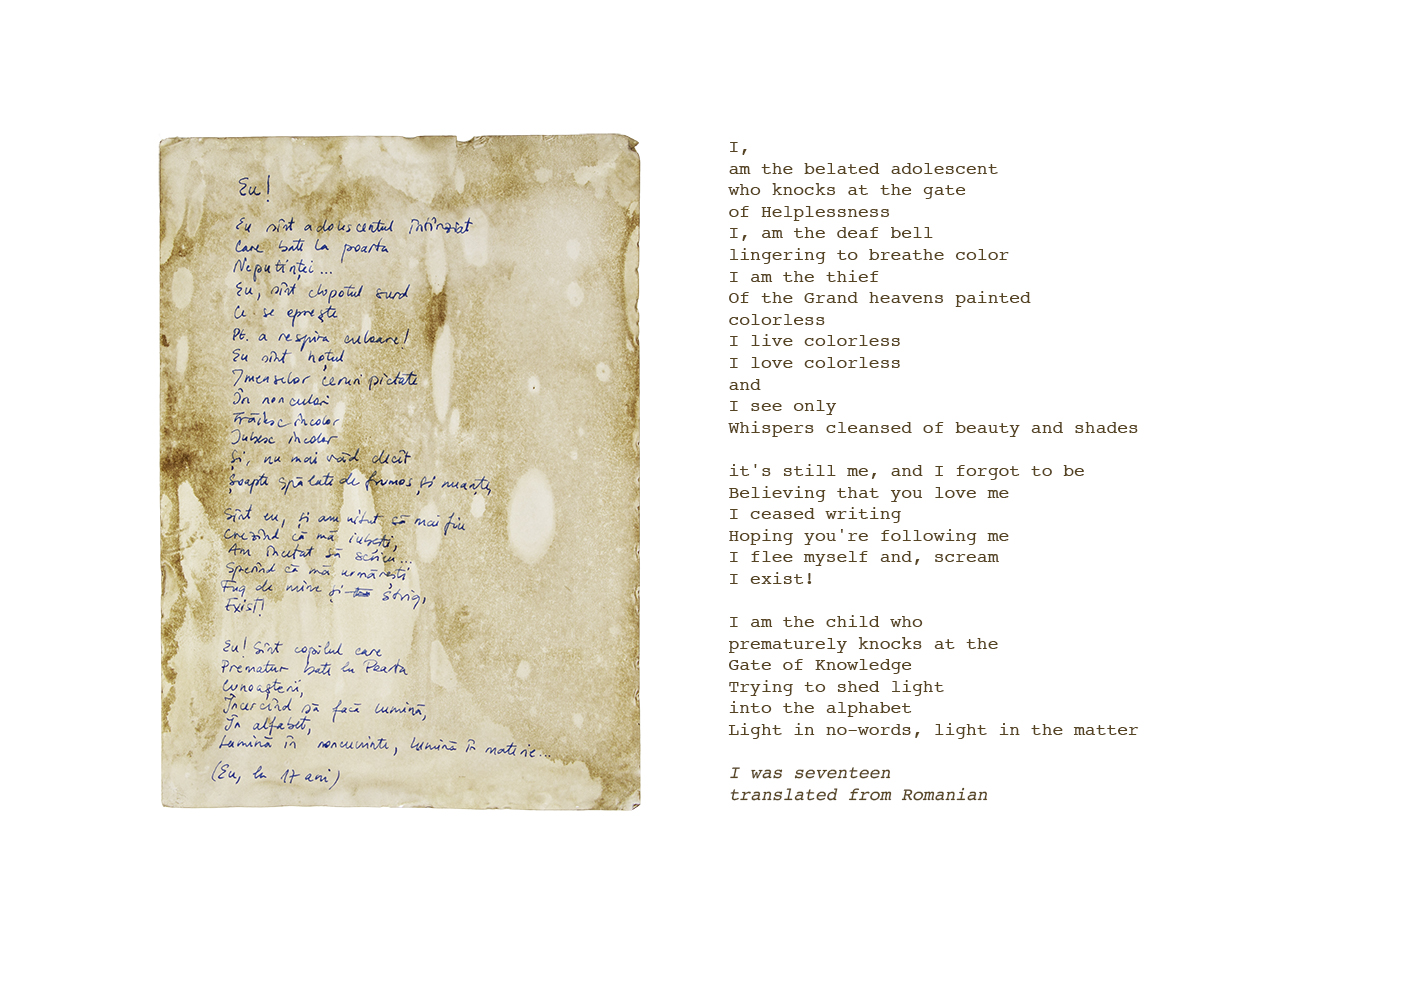 Eu!
Eu sînt adolescentul întîrziat
Care bate la poarta
Neputinței...
Eu, sînt clopotul surd
Ce se oprește
Pt. a respira culoare!
Eu sînt hoțul
Imenselor ceruri pictate
În nonculori
Trăiesc incolor
Iubesc incolor
Și, nu mai văd decît
Șoapte spălate de frumos și nuanțe,
Sînt eu, și am uitat că mai fiu
Crezînd că mă iubești,
Am încetat să scriu...
Sperînd că mă urmărești
Fug de mine și strig,
Exist!
Eu! Sînt copilul care
Prematur bate la Poarta
Cunoașterii,
Încercînd să facă lumină,
În alfabet,
Lumină în noncuvinte, lumină în materie...
(Eu, la 17 ani)
I,
am the belated adolescent
who knocks at the gate
of Helplessness
I, am the deaf bell
lingering to breathe color
I am the thief
Of the Grand heavens painted
colorless
I live colorless
I love colorless
and
I see only
Whispers cleansed of beauty and shades
it's still me, and I forgot to be
Believing that you love me
I ceased writing
Hoping you're following me
I flee myself and, scream
I exist!
I am the child who
prematurely knocks at the
Gate of Knowledge
Trying to shed light
into the alphabet
Light in no-words, light in the matter
I was seventeen
translated from Romanian